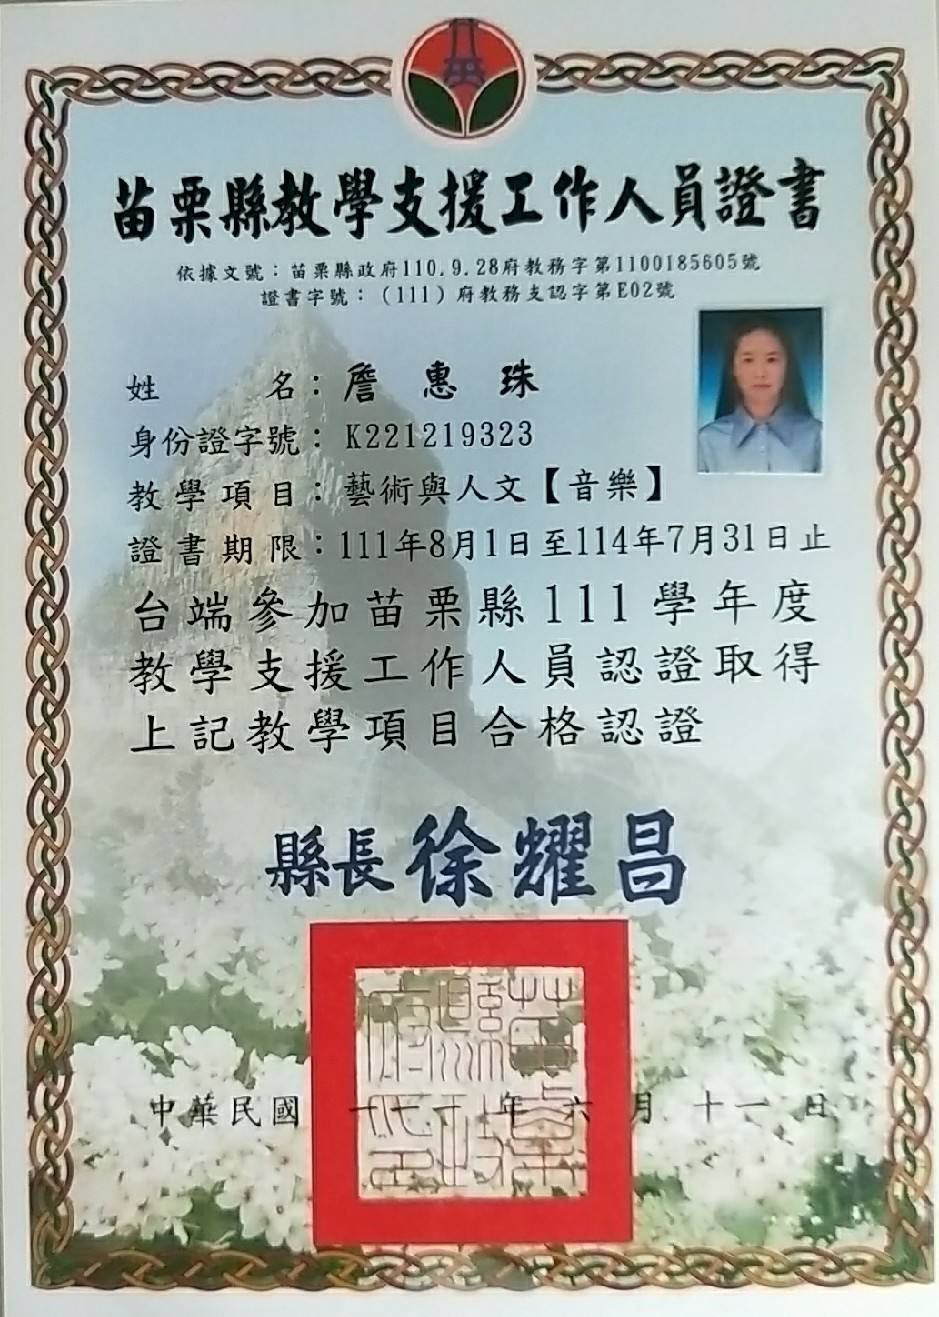 苗栗縣教學支援工作人員證書
依據文號：苗栗縣政府110.9.28府教務字第1100185605號
證書字號：（111）府教務支認字第E02號
姓名：詹惠珠
身份證字號：K221219323
教學項目：藝術與人文【音樂】
證書期限：111年8月1日至114年7月31日止
台端參加苗栗縣111學年度
教學支援工作人員認證取得
上記教學項目合格認證
縣長 徐耀昌
苗栗縣政府印
中華民國 年六月十一日